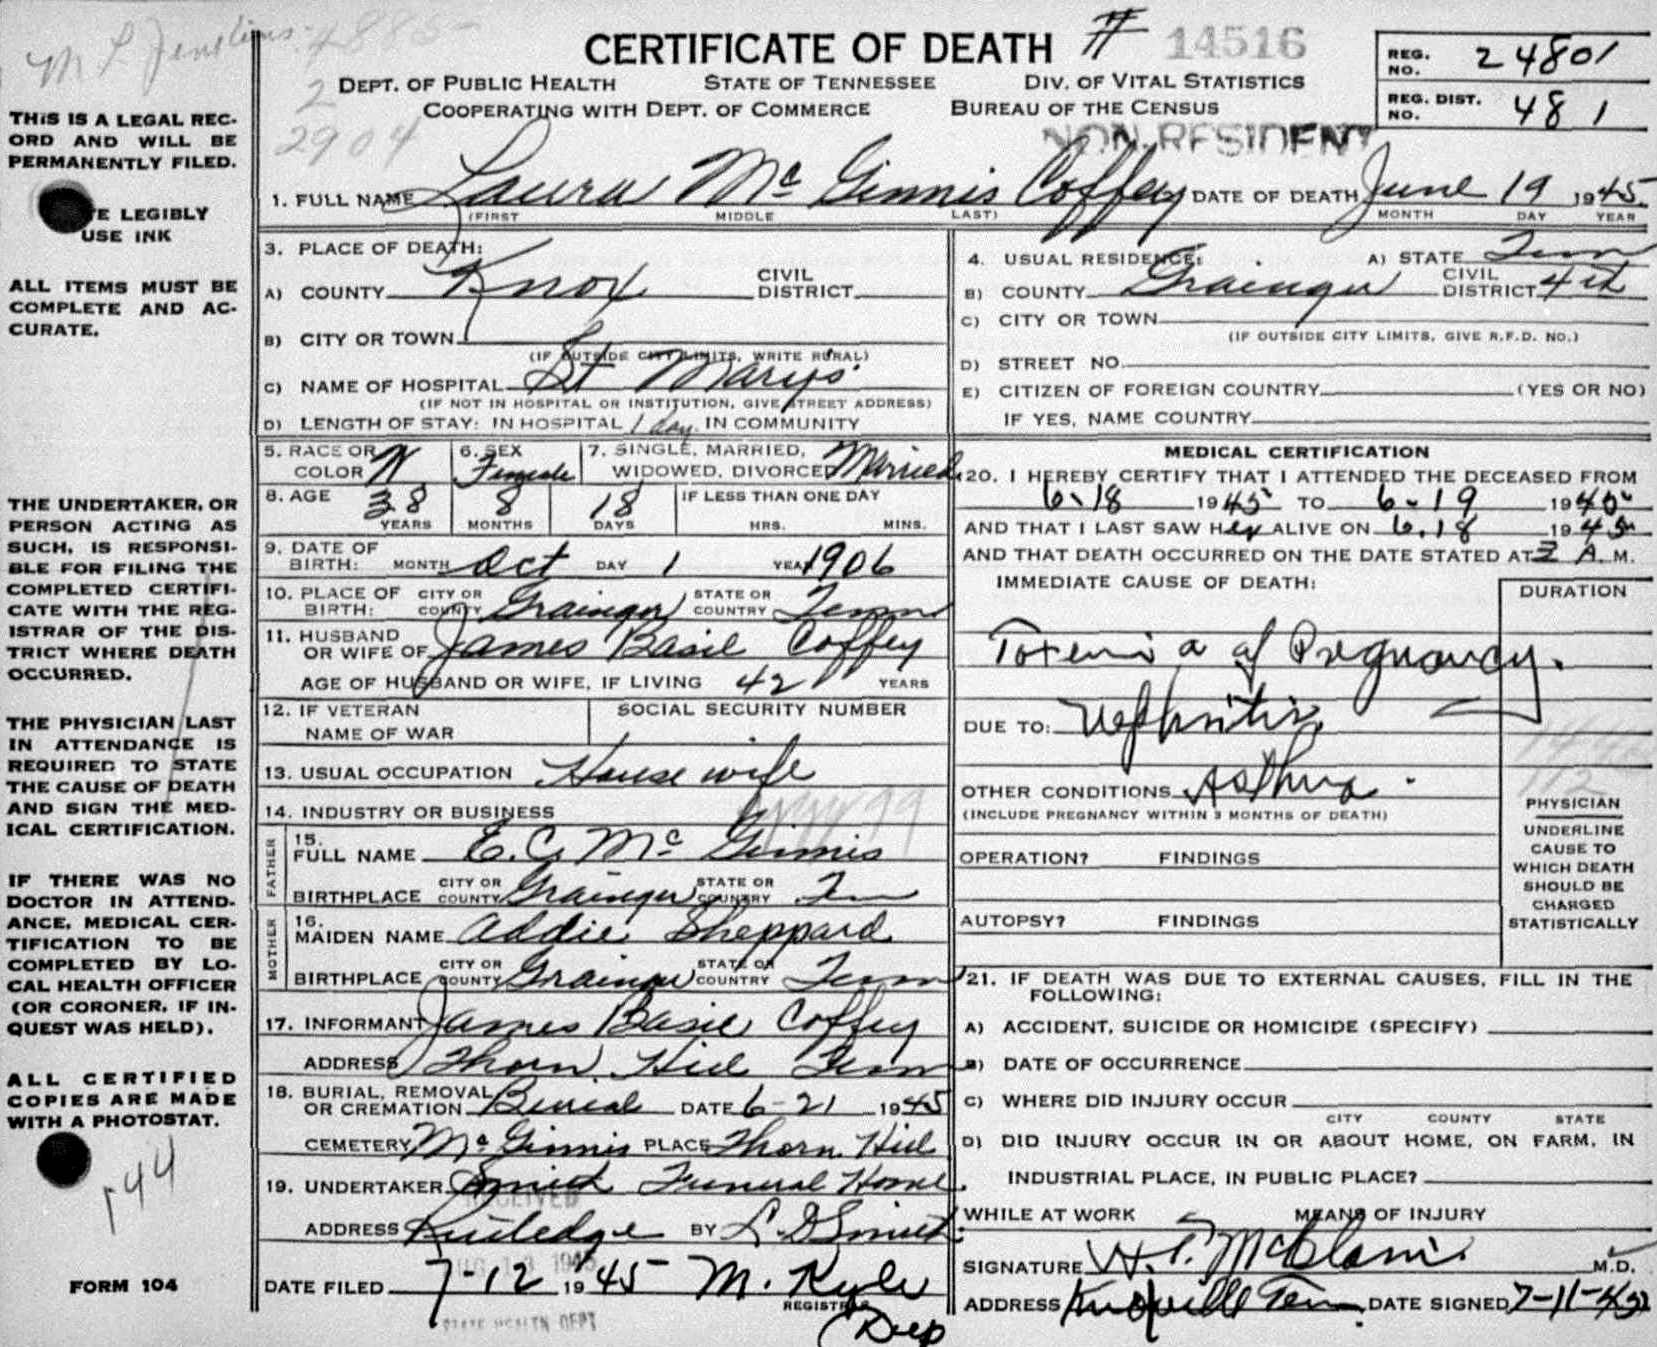 M L Jenkins
CERTIFICATE OF DEATH # 14516
REG. NO. 24801
DEPT. OF PUBLIC HEALTH STATE OF TENNESSEE DIV. OF VITAL STATISTICS
COOPERATING WITH DEPT. OF COMMERCE BUREAU OF THE CENSUS
REG. DIST. NO. 481
2
2904
NON-RESIDENT
THIS IS A LEGAL REC-
ORD AND WILL BE
PERMANENTLY FILED.
LEGIBLY
USE INK
ALL ITEMS MUST BE
COMPLETE AND AC-
CURATE.
THE UNDERTAKER, OR
PERSON ACTING AS
SUCH, IS RESPONSI-
BLE FOR FILING THE
COMPLETED CERTIFI-
CATE WITH THE REG-
ISTRAR OF THE DIS-
TRICT WHERE DEATH
OCCURRED.
THE PHYSICIAN LAST
IN ATTENDANCE IS
REQUIRED TO STATE
THE CAUSE OF DEATH
AND SIGN THE MED-
ICAL CERTIFICATION.
IF THERE WAS NO
DOCTOR IN ATTEND-
ANCE, MEDICAL CER-
TIFICATION TO BE
COMPLETED BY LO-
CAL HEALTH OFFICER
(OR CORONER, IF IN-
QUEST WAS HELD).
ALL CERTIFIED
COPIES ARE MADE
WITH A PHOTOSTAT.
144
FORM 104
1. FULL NAME Laura Mc Ginnis Coffey DATE OF DEATH June 19 1945
(FIRST MIDDLE LAST) MONTH DAY YEAR
3. PLACE OF DEATH:
A) COUNTY Knox CIVIL DISTRICT
B) CITY OR TOWN
(IF OUTSIDE CITY LIMITS, WRITE RURAL)
C) NAME OF HOSPITAL St Marys
(IF NOT IN HOSPITAL OR INSTITUTION, GIVE STREET ADDRESS)
D) LENGTH OF STAY: IN HOSPITAL 1 day IN COMMUNITY
5. RACE OR COLOR W 6. SEX Female 7. SINGLE, MARRIED, WIDOWED, DIVORCED Married
8. AGE 38 YEARS 8 MONTHS 18 DAYS IF LESS THAN ONE DAY HRS. MINS.
9. DATE OF BIRTH: MONTH Oct DAY 1 YEAR 1906
10. PLACE OF BIRTH: CITY OR COUNTY Grainger STATE OR COUNTRY Tenn
11. HUSBAND OR WIFE OF James Basil Coffey
AGE OF HUSBAND OR WIFE, IF LIVING 42 YEARS
12. IF VETERAN NAME OF WAR SOCIAL SECURITY NUMBER
13. USUAL OCCUPATION House wife
14. INDUSTRY OR BUSINESS
FATHER
15. FULL NAME E. G Mc Ginnis
BIRTHPLACE CITY OR COUNTY Grainger STATE OR COUNTRY Tenn
MOTHER
16. MAIDEN NAME Addie Sheppard
BIRTHPLACE CITY OR COUNTY Grainger STATE OR COUNTRY Tenn
17. INFORMANT James Basil Coffey
ADDRESS Thorn Hill Tenn
18. BURIAL, REMOVAL OR CREMATION Burial DATE 6-21 1945
CEMETERY Mc Ginnis PLACE Thorn Hill
19. UNDERTAKER Smith Funeral Home
RECEIVED
ADDRESS Rutledge BY L. D Smith
DATE FILED 7-12 1945 M. Kyle
REGISTRAR
STATE HEALTH DEPT
Dep
4. USUAL RESIDENCE: A) STATE Tenn
B) COUNTY Grainger CIVIL DISTRICT 4th
C) CITY OR TOWN
(IF OUTSIDE CITY LIMITS, GIVE R.F.D. NO.)
D) STREET NO.
E) CITIZEN OF FOREIGN COUNTRY (YES OR NO)
IF YES, NAME COUNTRY
MEDICAL CERTIFICATION
20. I HEREBY CERTIFY THAT I ATTENDED THE DECEASED FROM
6-18 1945 TO 6-19 1945
AND THAT I LAST SAW Her ALIVE ON 6.18 1945
AND THAT DEATH OCCURRED ON THE DATE STATED AT A. M.
IMMEDIATE CAUSE OF DEATH: DURATION
Toxemia of Pregnancy.
DUE TO: Nephritis
OTHER CONDITIONS Asthma
(INCLUDE PREGNANCY WITHIN 3 MONTHS OF DEATH)
112
PHYSICIAN
UNDERLINE
CAUSE TO
WHICH DEATH
SHOULD BE
CHARGED
STATISTICALLY
OPERATION? FINDINGS
AUTOPSY? FINDINGS
21. IF DEATH WAS DUE TO EXTERNAL CAUSES, FILL IN THE
FOLLOWING:
A) ACCIDENT, SUICIDE OR HOMICIDE (SPECIFY)
B) DATE OF OCCURRENCE
C) WHERE DID INJURY OCCUR
CITY COUNTY STATE
D) DID INJURY OCCUR IN OR ABOUT HOME, ON FARM, IN
INDUSTRIAL PLACE, IN PUBLIC PLACE?
WHILE AT WORK MEANS OF INJURY
SIGNATURE M.D.
ADDRESS Knoxville Tenn. DATE SIGNED 7-11-45